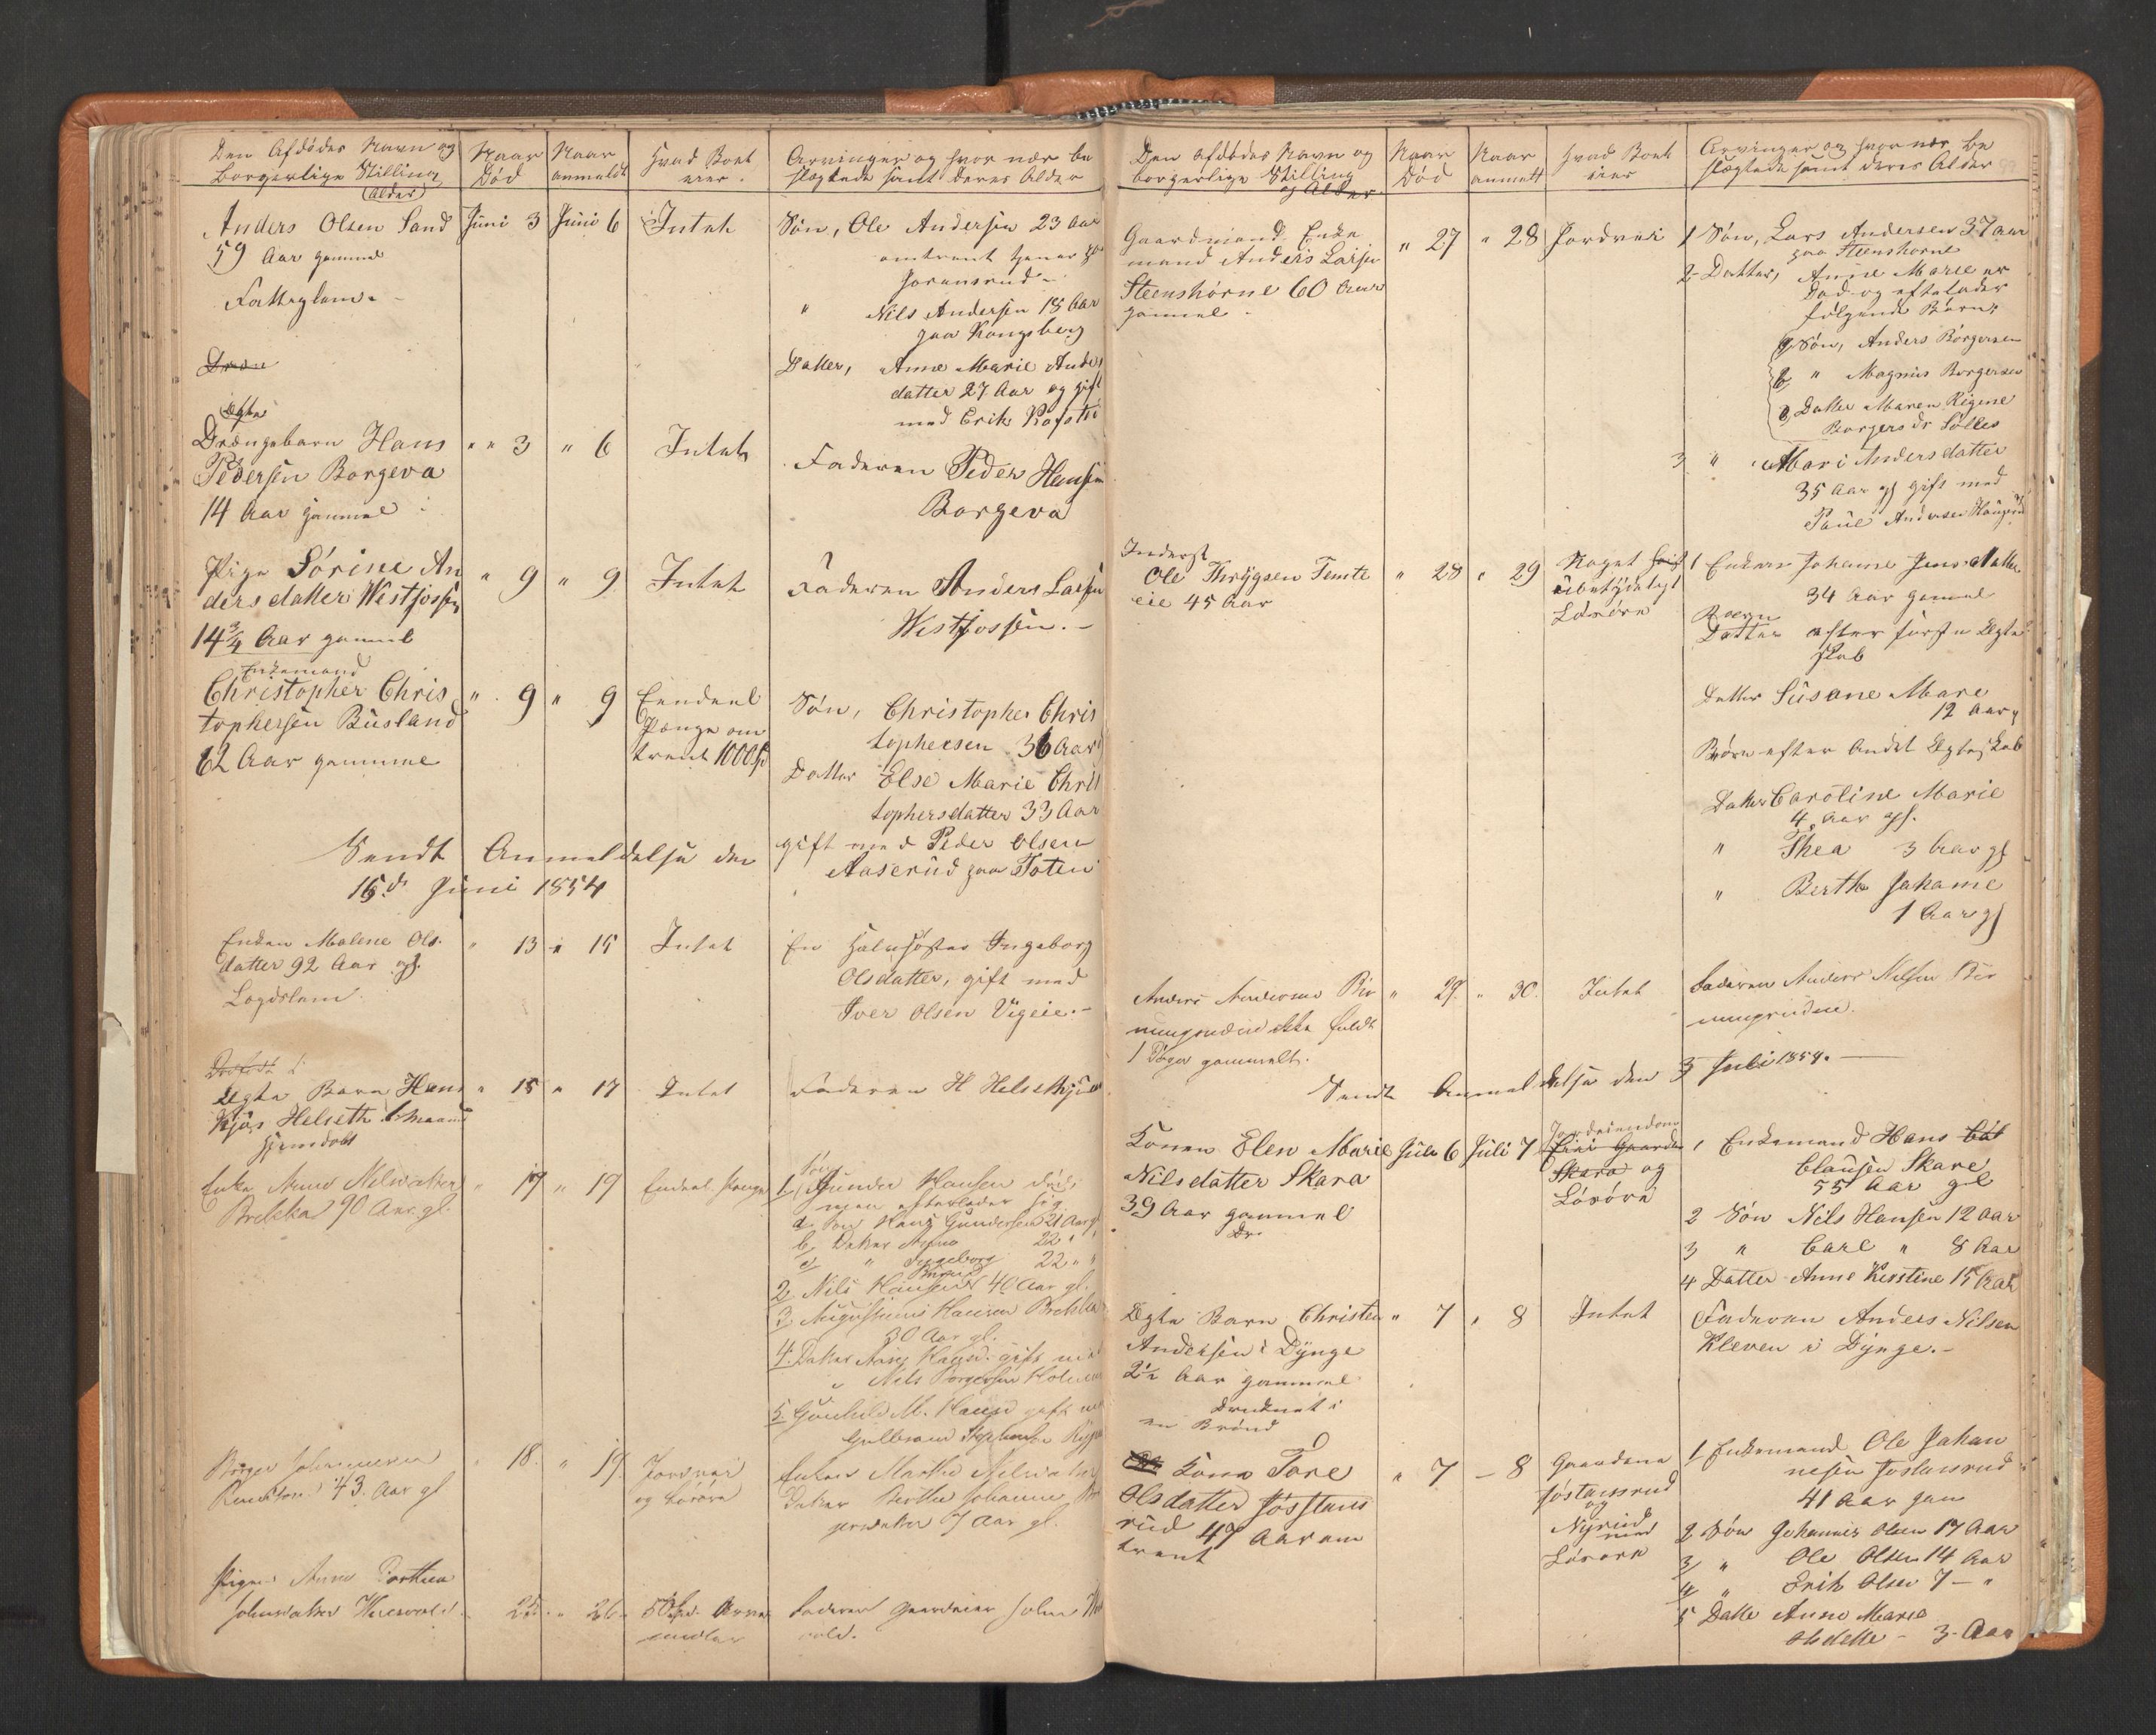 Den Afdødes Navn og
borgerlige Stilling
(Alder)
Naar
Død
Naar
anmeldt
Hvad Boet
eier.
Arvinger og hvor nær be
slægtede samt deres Alder
Anders Olsen Sand
59 Aar gammel
Fattiglem
Juni 3
Juni 6
Intet
Søn, Ole Andersen 23 Aar
omtrent tjener
" Nils Andersen 18 Aar
paa Kongsberg
Datter, Anne Marie Anders
datter 27 Aar og gift
med Erik
Ægte
Drængebarn Hans
Pedersen Borgeva
14 Aar gammel
" " 3
" 6
Intet
Faderen Peder Hansen
Borgeva
Pige Sørine An
dersdatter Westfossen
14 3/4 Aar gammel
" 9
" 9
Intet
Faderen Anders Larsen
Westfossen.-
Enkemand
Christopher Chris
tophersen Busland
62 Aar gammel
" 9
" 9
Eendeel
Penge om
trent 1000 Sp
Søn, Christopher Chris
tophersen 36 Aar
Datter Else Marie Chris
tophersdatter 33 Aar
gift med Peder Olsen
Aaserud paa Toten
Sendt Anmeldelse den
15d Juni 1854
Enken Malene Ols
datter 92 Aar gl.
Lægdslem
" 13
" 15
Intet
En Halvsøster Ingeborg
Olsdatter, gift med
Iver Olsen Vigeie.-
Ægte Barn Hans
Kjøs Helseth 1 Maaned
Hjemdøbt
" 15
" 17
Intet
Faderen H Helseth
Enke Anne Nilsdatter
90 Aar gl.
" 17
" 19
Endeel Penge
1 Søn Gunder Hansen død,
men efterlader sig
a Søn Hans Gundersen 21 Aar gl
b, Datter Anne 22 " "
c, " Ingeborg 22 " "
2 Nils Hansen 40 Aar gl.
3, Hansen
30 Aar gl.
4. Datter Hansd. gift med
Nils Borgersen
5. Gunhild M. Hansd gift med
Børger Johannesen
43. Aar gl
" 18.
" 19.
Jordvei
og Løsøre
Enken Marthe Nilsdatter
Datter Berthe Johanne
gersdatter 7 Aar gl.
Pigen Anne Dorthea
Johnsdatter
" 25.
" 26.
Faderen Gaardeier John
vold.
Den Afdødes Navn og
borgerlige Stilling
og Alder
Naar
Død
Naar
anmelt
Hvad Boet
eier
Arvinger og hvor nær be
slægtede samt deres Alder
Gaardmand Enke
mand Anders Larsen
Steenshorne 60 Aar
gammel.
" 27
" 28
Jordvei
1 Søn, Lars Andersen 37 Aar
paa Steenshorne
2 Datter, Anne Marie er
Død og efterlader
følgende Børn,
a, Søn, Anders Borgersen
b, " Magnus Borgersen
c, Datter Maren Regine
Borgersdr
3 " Mari Andersdatter
35 Aar og gift med
Paul Andersen
Inderst
Ole Thrygsen Temte
eie 45 Aar
" 28
" 29
Noget
ubetydeligt
Løsøre
1 Enken Johanne Jensdatter
34 Aar gammel
Børn
Datter efter første Ægte
skab
Datter Susane Mare
12 Aar,
Børn efter Andet Ægteskab
Datter Caroline Marie
4 Aar gl.
" Thea 3 Aar gl
" Berthe Johanne
1 Aar gl
Anders Andersen Bin
ningruden ikke fuldt
1 Døgn gammelt.
" 29.
" 30.
Intet
Faderen Anders Nilsen Bin
ningruden.
Sendt Anmeldelse den 3 Juli 1854.
Konen Elen Marie
Nilsdatter Skara
39 Aar gammel
Juli 6
Juli 7
Jordeiendom
Eier Gaarden
Skara og
Løsøre
1 Enkemand Hans
Clausen Skare
55 Aar gl
2 Søn Nils Hansen 12 Aar
3 " Carl " 8 Aar
4 Datter Anne Kirstine 15 Aar
Ægte Barn Christen
Andersen i Dynge
2 1/2 Aar gammel
Druknet i
en Brønd
" 7
" 8
Intet
Faderen Anders Nilsen
Kleven i Dynge.-
Kone Tore
Olsdatter Jøsstans
rud 47 Aar om
trent
" 7
- 8
Gaardene
Jøstansrud
og
Nyrud
med
Løsøre
1 Enkemand Ole Johan
nesen Jostansrud
41 Aar gam
2 Søn Johannes Olsen 17 Aar
3 " Ole Olsen 14 Aar
4 " Erik Olsen 7 - "
5 Datte Anne Maria
Olsdatte - 3 Aar